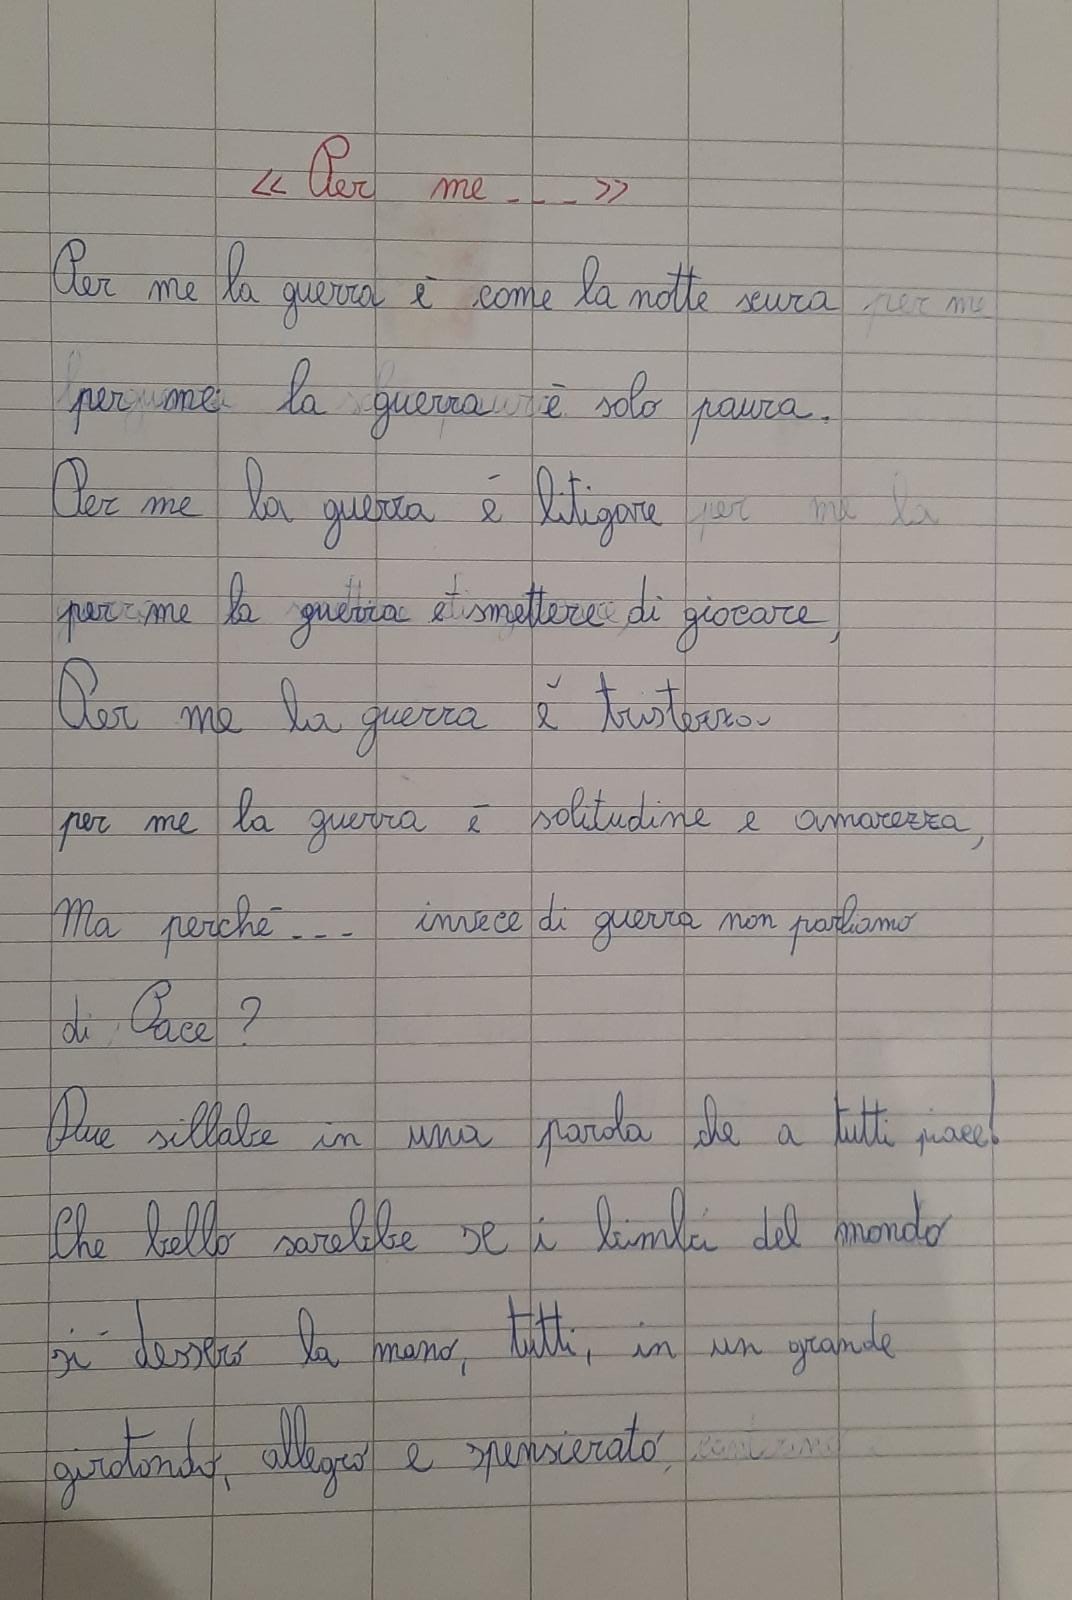 « Per me... »
Per me la guerra è come la notte scura
per me la guerra è solo paura.
Per me la guerra è litigare
per me la guerra è smettere di giocare,
Per me la guerra è tristezza
per me la guerra è solitudine e amarezza,
Ma perchè... invece di guerra non parliamo
di Pace?
Due sillabe in una parola che a tutti piace!
Che bello sarebbe se i bimbi del mondo
si dessero la mano, tutti, in un grande
girotondo, allegro e spensierato